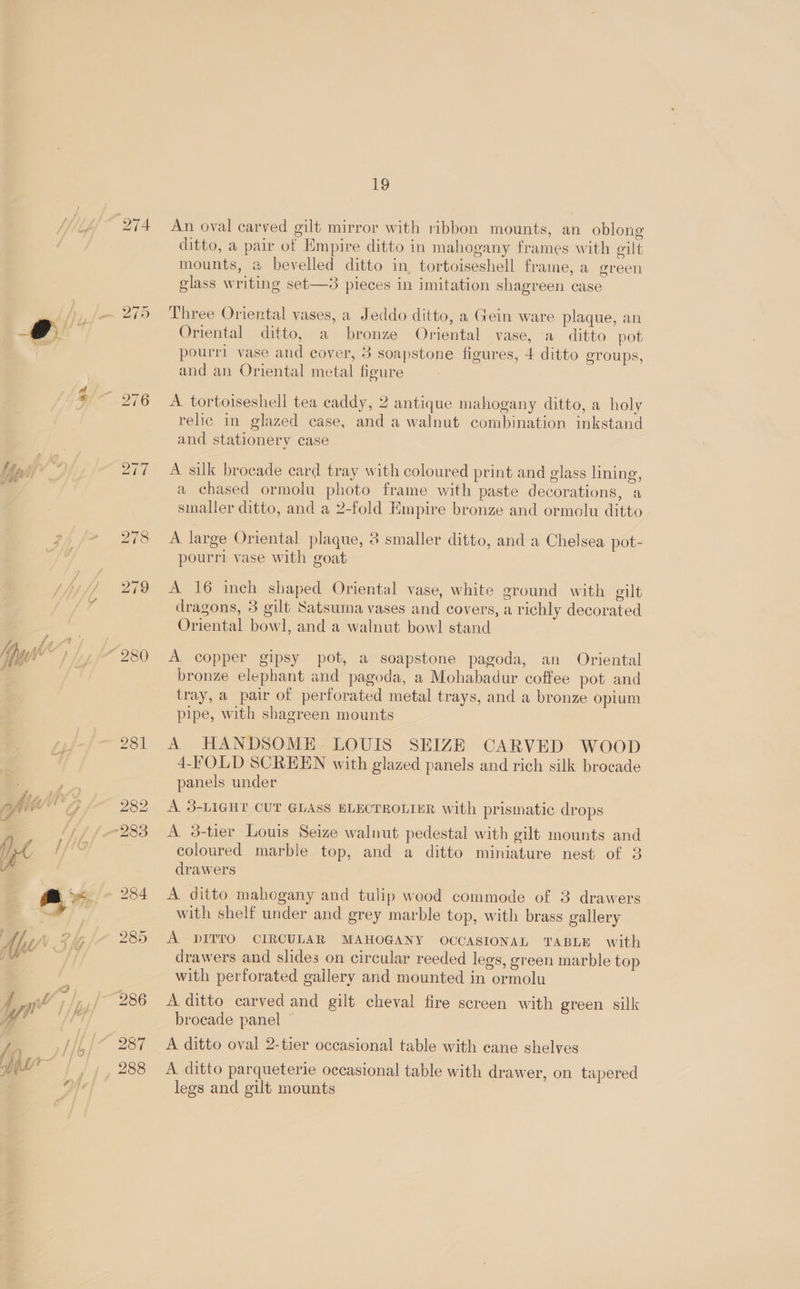 19
274 An oval carved gilt mirror with ribbon mounts, an oblong
ditto, a pair of Empire ditto in mahogany frames with gilt
mounts, a bevelled ditto in tortoiseshell frame, a green
glass writing set—3 pieces in imitation shagreen case
275 Three Oriental vases, a Jeddo ditto, a Gein ware plaque, an
Oriental ditto, a bronze Oriental vase, a ditto pot
pourri vase and cover, 3 soapstone figures, 4 ditto groups,
and an Oriental metal figure
276 A tortoiseshell tea caddy, 2 antique mahogany ditto, a holy
relic in glazed case, and a walnut combination inkstand
and stationery case
277 A silk brocade card tray with coloured print and glass lining,
a chased ormolu photo frame with paste decorations, a
smaller ditto, and a 2-fold Empire bronze and ormolu ditto
278 A large Oriental plaque, 3 smaller ditto, and a Chelsea pot-
pourri vase with goat
279 A 16 inch shaped Oriental vase, white ground with gilt
dragons, 3 gilt Satsuma vases and covers, a richly decorated
Oriental bowl, and a walnut bowl stand
280 A copper gipsy pot, a soapstone pagoda, an Oriental
bronze elephant and pagoda, a Mohabadur coffee pot and
tray, a pair of perforated metal trays, and a bronze opium
pipe, with shagreen mounts
281 A HANDSOME LOUIS SEIZE CARVED WOOD
4-FOLD SCREEN with glazed panels and rich silk brocade
panels under
282 A 3-LIGHT CUT GLASS ELECTROLIER with prismatic drops
283 A 3-tier Louis Seize walnut pedestal with gilt mounts and
coloured marble top, and a ditto miniature nest of 3
drawers
284 A ditto mahogany and tulip wood commode of 3 drawers
with shelf under and grey marble top, with brass gallery
285 A DITTO CIRCULAR MAHOGANY OCCASIONAL TABLE with
drawers and slides on circular reeded legs, green marble top
with perforated gallery and mounted in ormolu
286 A ditto carved and gilt cheval fire screen with green silk
brocade panel
287 A ditto oval 2-tier occasional table with cane shelves
288 A ditto parqueterie occasional table with drawer, on tapered
legs and gilt mounts